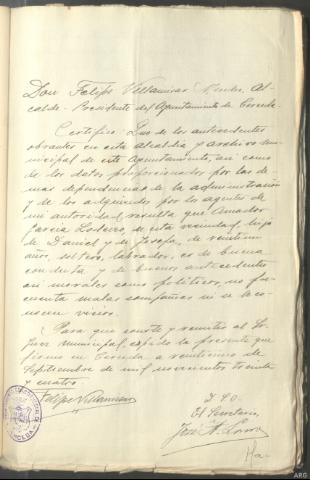 Don Felipe Villamisar Alcalde-Presidente del Ayuntamiento de
Certifico: Que de los antecedentes
obrantes en esta Alcaldía y Archivo municipal
de este Ayuntamiento, así como
de los datos proporcionados por las demas
dependencias de la administración
y de los adquiridos por los agentes de
mi autoridad, resulta que Amador
Garcia de esta vecindad, hijo
de Daniel y de Josefa, de veintiun
años, soltero, labrador, es de buena
conducta y de buenos antecedentes
asi morales como politicos, no frecuenta
malas compañias ni se le conocen
vicios.
Para que conste y remitir al Sr.
Juez Municipal, expido la presente que
firmo en a veintiuno de
Septiembre de mil novecientos treinta
y cuatro.
Felipe Villamisar
El Secretario,
José
ARG